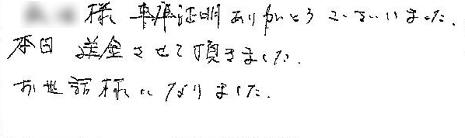 様 車庫証明ありがとうございました.
本日 送金させて頂きました.
お世話様になりました.